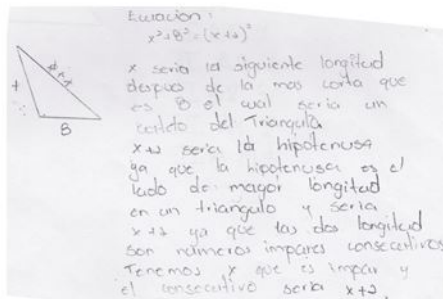 Ecuacion:
x²+8²=(x+2)²
x seria la siguiente longitud
despues de la mas corta que
es 8 el cual seria un
cateto del Triangulo
x+2 seria la hipotenusa
ya que la hipotenusa es el
lado de mayor longitud
en un triangulo y seria
x+2 ya que las dos longitud
son números impares consecutivos
Tenemos x que es impar y
el consecutivo seria x+2
8